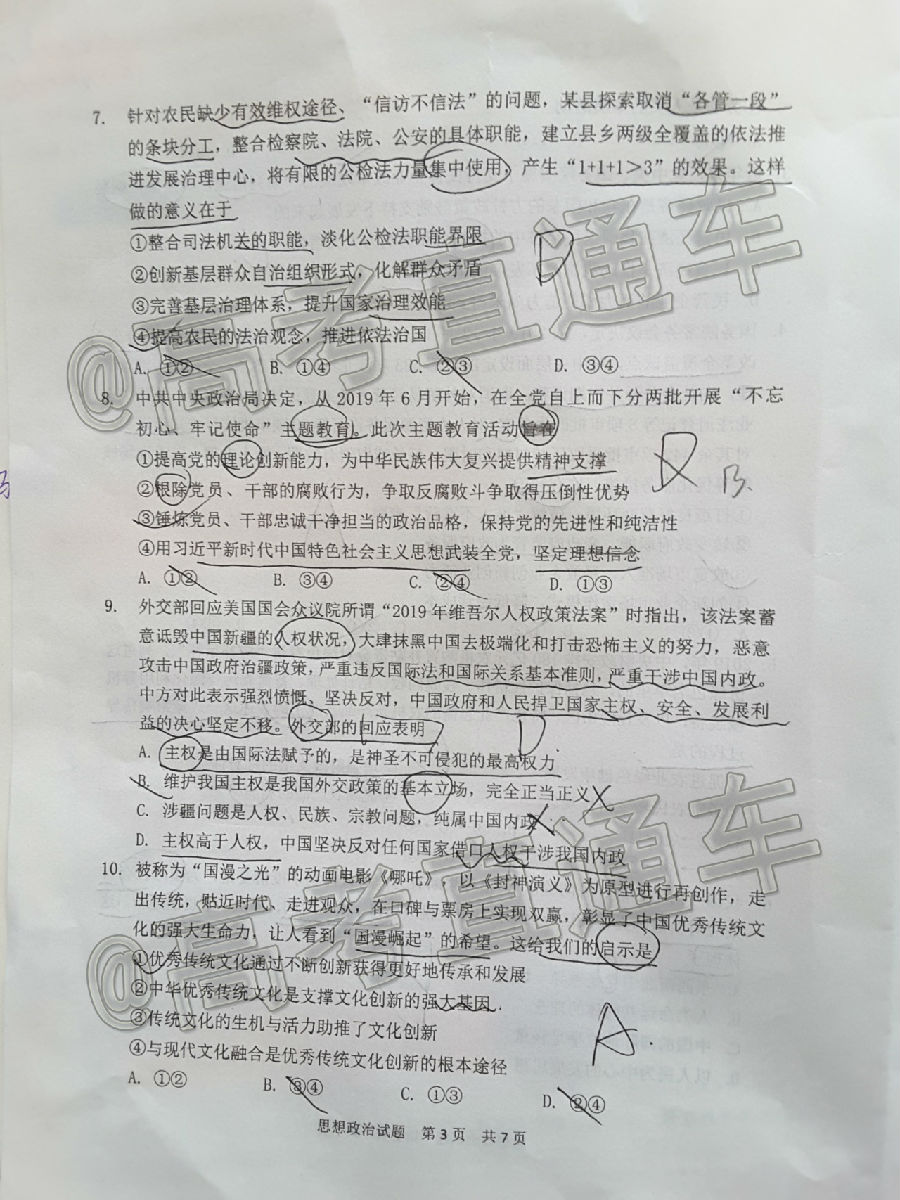 7. 针对农民缺少有效维权途径、“信访不信法”的问题，某县探索取消“各管一段”
的条块分工，整合检察院、法院、公安的具体职能，建立县乡两级全覆盖的依法推
进发展治理中心，将有限的公检法力量集中使用，产生“1+1+1>3”的效果。这样
做的意义在于
①整合司法机关的职能，淡化公检法职能界限
②创新基层群众自治组织形式，化解群众矛盾
③完善基层治理体系，提升国家治理效能
④提高农民的法治观念，推进依法治国
A. ①② B. ①④ C. ②③ D. ③④
D
8. 中共中央政治局决定，从2019年6月开始，在全党自上而下分两批开展“不忘
初心、牢记使命”主题教育。此次主题教育活动旨在
①提高党的理论创新能力，为中华民族伟大复兴提供精神支撑
②根除党员、干部的腐败行为，争取反腐败斗争取得压倒性优势
③锤炼党员、干部忠诚干净担当的政治品格，保持党的先进性和纯洁性
④用习近平新时代中国特色社会主义思想武装全党，坚定理想信念
A. ①② B. ③④ C. ②④ D. ①③
B.
9. 外交部回应美国国会众议院所谓“2019年维吾尔人权政策法案”时指出，该法案蓄
意诋毁中国新疆的人权状况，大肆抹黑中国去极端化和打击恐怖主义的努力，恶意
攻击中国政府治疆政策，严重违反国际法和国际关系基本准则，严重干涉中国内政。
中方对此表示强烈愤慨、坚决反对，中国政府和人民捍卫国家主权、安全、发展利
益的决心坚定不移。外交部的回应表明
A. 主权是由国际法赋予的，是神圣不可侵犯的最高权力
B. 维护我国主权是我国外交政策的基本立场，完全正当正义
C. 涉疆问题是人权、民族、宗教问题，纯属中国内政
D. 主权高于人权，中国坚决反对任何国家借口人权干涉我国内政
D
10. 被称为“国漫之光”的动画电影《哪吒》，以《封神演义》为原型进行再创作，走
出传统，贴近时代、走进观众，在口碑与票房上实现双赢，彰显了中国优秀传统文
化的强大生命力，让人看到“国漫崛起”的希望。这给我们的启示是
①优秀传统文化通过不断创新获得更好地传承和发展
②中华优秀传统文化是支撑文化创新的强大基因
③传统文化的生机与活力助推了文化创新
④与现代文化融合是优秀传统文化创新的根本途径
A. ①② B. ③④ C. ①③ D. ②④
A.
思想政治试题 第3页 共7页
@高考直通车
@高考直通车